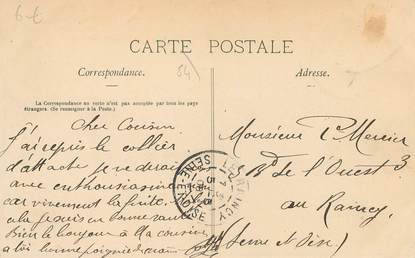 6-€
CARTE POSTALE
Correspondance.
Adresse.
La Correspondance au verso n'est pas acceptée par tous les pays
étrangers. (Se renseigner à la Poste.)
Cher Cousin
J'ai repris le collier
d'attache je ne dirai
avec enthousiasme
car vivement la fuite.
en bonne santé
Bien le bonjour à ta cousine
à toi bonne poignée de main
Monsieur Mercier
Bd de l'Ouest 3
au Raincy
(Seine et Oise)
RAINCY
SEINE-ET-OISE